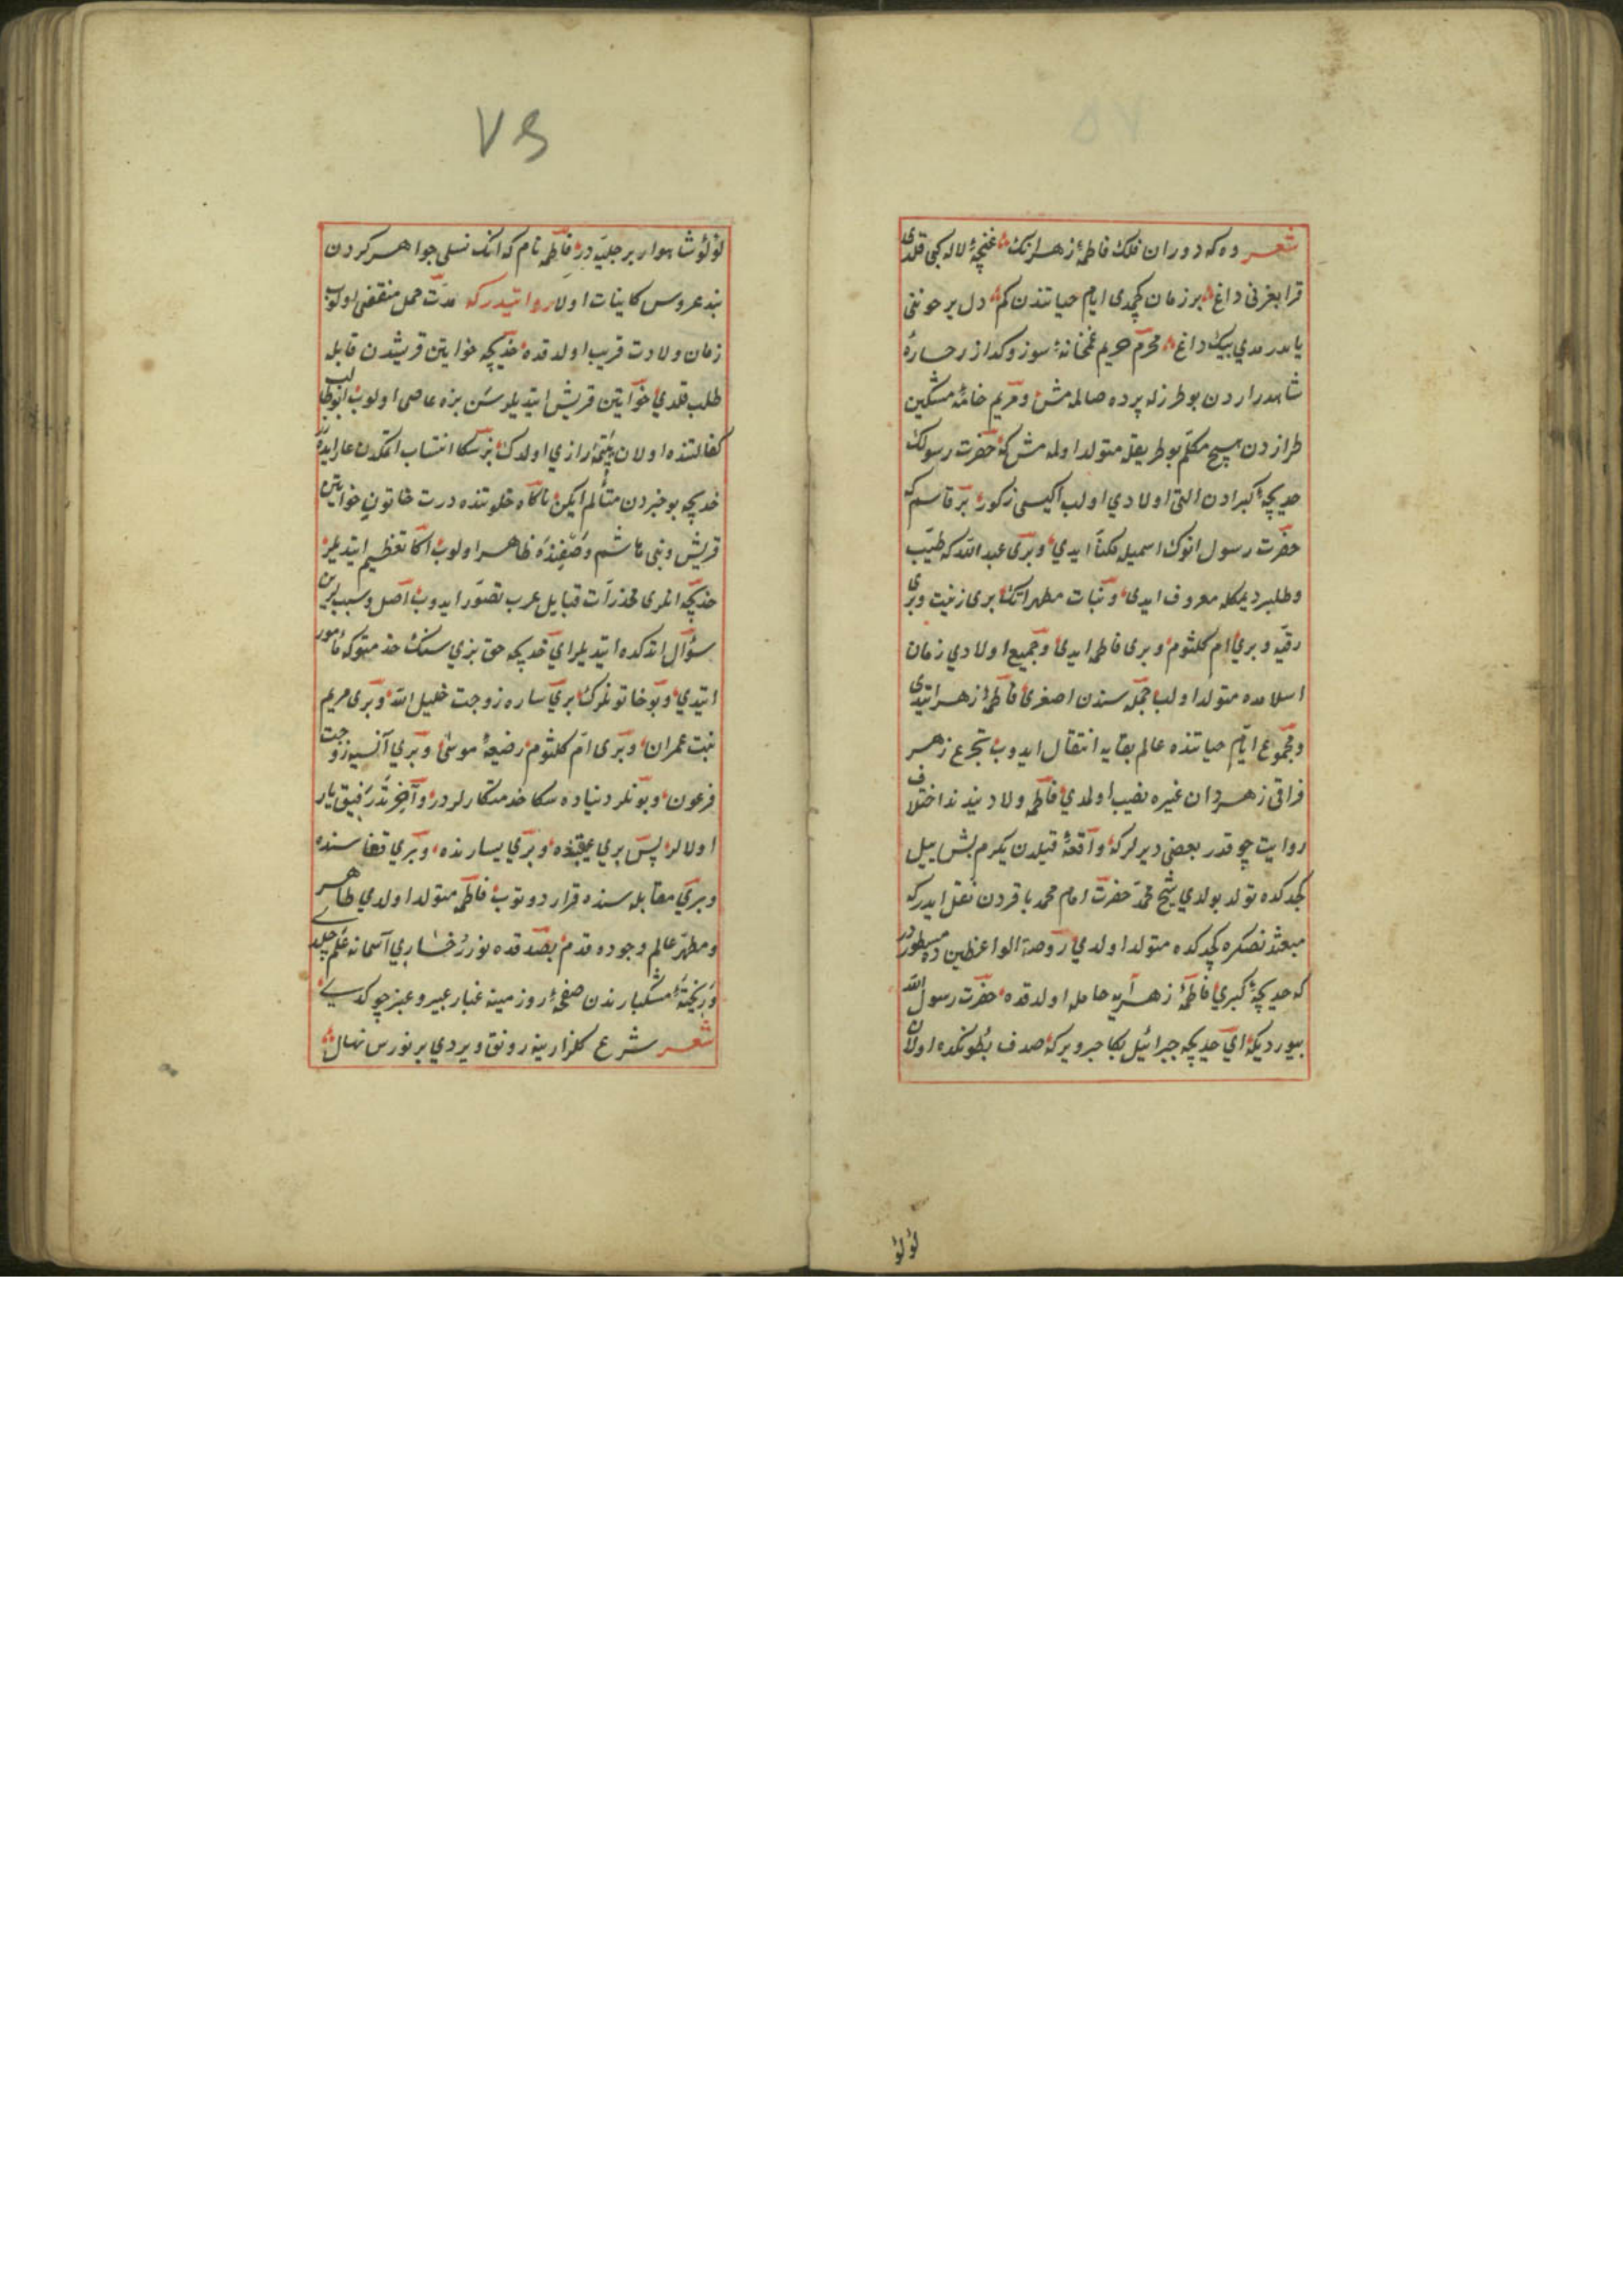 شعر ده كه دوران فلك فاطمهٔ زهرانك غنچهٔ لاله كبی قلدی
قرا بغرنی داغ بر زمان كچمدی ایام حیاتندن كم دل پر خوننی
یاندرمدی بیك داغ محرم حریم غمخانهٔ سوز وكداز رخسارهٔ
شاهدراردن بو طرزله پرده صالمش ومریم خامهٔ مشكین
طرازدن مسیح مكلّم بو طریقله متولد اولمه مش كه حضرت رسولك
خدیجهٔ كبرادن التی اولادی اولب ایكیسی ذكور بر قاسم كه
حضرت رسول انوك اسمیله مكنّا ایدی وبری عبد الله كه طیّب
وطاهر دیمكله معروف ایدی وبنات مطهراتك بری زینب وبری
رقیّه وبری ام كلثوم وبری فاطمه ایدی وجمیع اولادی زمان
اسلامده متولد اولب جمله سندن اصغری فاطمهٔ زهرا ایدی
ومجموع ایّام حیاتنده عالم بقایه انتقال ایدوب تجرع زهر
فراقی زهرادان غیره نصیب اولمدی فاطمه ولادتینده اختلاف
روایت چوقدر بعضی دیرلر كه واقعهٔ فیلدن یكرم بش ییل
كچدكده تولد بولدی شیخ محمد حضرت امام محمد باقردن نقل ایدر كه
مبعثدنصكره كچدكده متولد اولدی روضة الواعظین ده مسطوردر
كه خدیجهٔ كبری فاطمهٔ زهرایه حامل اولدقده حضرت رسول الله
بیوردیكه ای خدیجه جبرائیل بكا خبر ویر كه صدف بطونكده اولان
لؤلؤ
٧٥
لؤلؤ شاهوار بر جلیّه در فاطمه نام كه انك نسلی جواهر كردن
بند عروس كاینات اولا روایتدر كه مدّت حمل منقضی اولوب
زمان ولادت قریب اولدقده خدیجه خواتین قریشدن قابله
طلب قلدی خواتین قریش ایتدیلر سن بزه عاصی اولوب ابو طالب
كفالتنده اولان یتیمه راضی اولدك بز سكا انتساب اتمكدن عار ایدرز
خدیجه بو خبردن متألم ایكن ناكاه خلوتنده درت خاتون خواتین
قریش وبنی هاشم وصفنده ظاهر اولوب اكا تعظیم ایتدیلر
خدیجه انلری مخدرات قبایل عرب تصوّر ایدوب اصل وسببلرین
سؤال اتدكده ایتدیلر ای خدیجه حق بزی سنك خدمتوكه مأمور
ایتدی وبو خاتونلرك بری ساره زوجت خلیل الله وبری مریم
بنت عمران وبری امّ كلثوم رضیعهٔ موسی وبری آسیه زوجت
فرعون وبونلر دنیاده سكا خدمتكارلردر وآخرتده رفیق یار
اولالر پس بری یمیننده وبری یسارنده وبری قفاسنده
وبری مقابله سنده قرار دوتوب فاطمه متولد اولدی طاهر
ومطهر عالم وجوده قدم بصدقده نور رخساری آسمانه علم چكدی
وریختهٔ مشكبارندن صفحهٔ روز مینه غبار عبیر وعنبر چوكدی
شعر شرع كلزارینه رونق ویردی بر نورس نهال